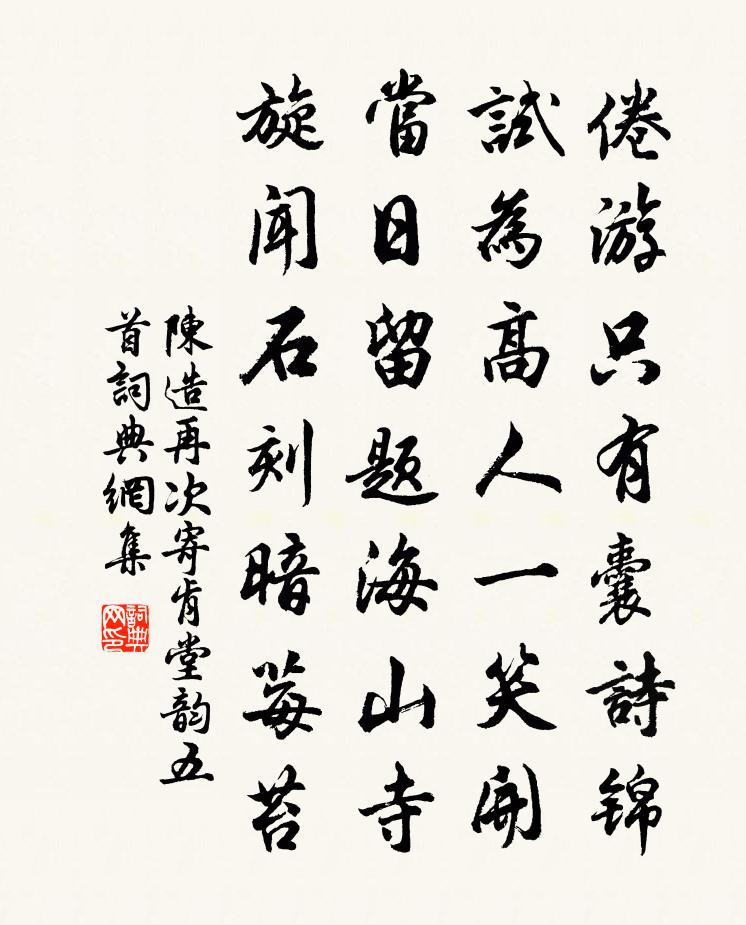 倦游只有囊詩锦
試為高人一笑開
當日留题海山寺
旋聞石刻暗莓苔
陳造再次寄肯堂韵五
首詞典網集
詞典
网印